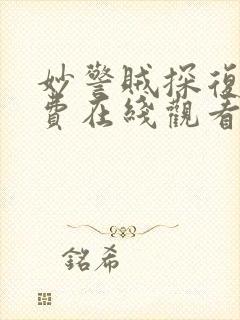 妙警贼探復
費在綫觀看
銘希